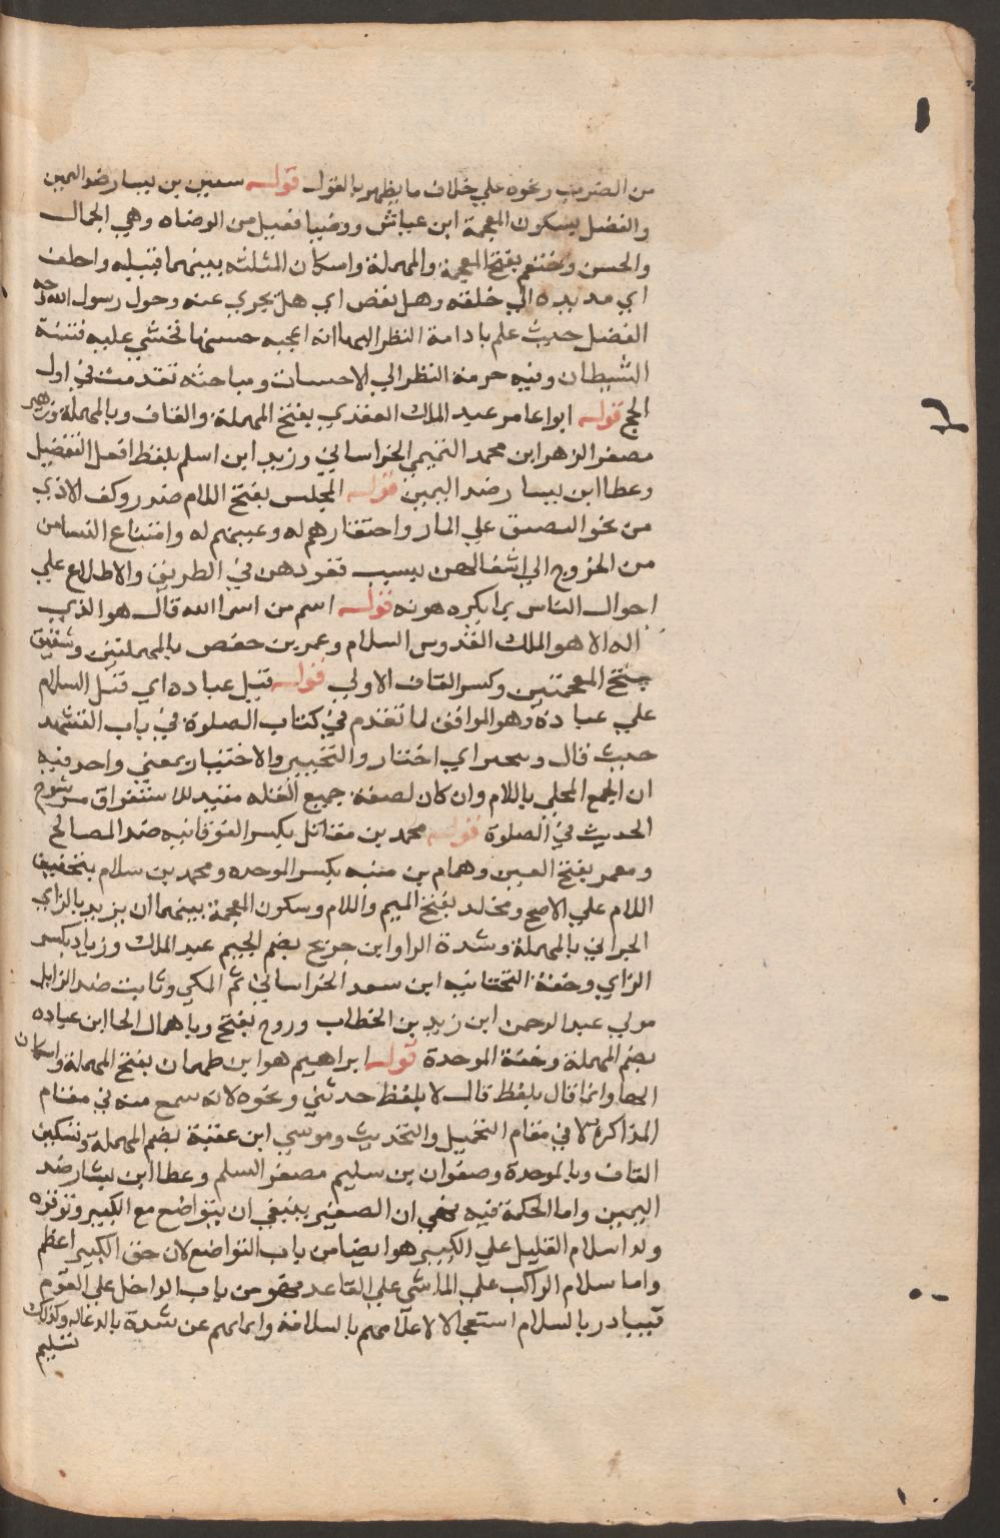 من الضرب ونحوه علي خلاف ما يظهر بالقول قوله سعين بن يسار ضد اليمين
والفضل بسكون المعجمة ابن عباش ووضيا فعيل من الوضاه وهي الجمال
والحسن وخثعم بفتح المعجمة والمهملة واسكان المثلثه بينهما قبيله واخلف
اي مد يده الي خلفه وهل نقض اي هل يجري عنه وحول رسول الله وجه
الفضل حيث علم بادامة النظر اليها انه اعجبه حسنها فخشي عليه فتنة
الشيطان وفيه حرمة النظر الي الاحسات ومباحثه تقدمت في اول
الحج قوله ابوا عامر عبد الملك العقدي بفتح المهملة والقاف وبالمهملة وزهير
مصغر الزهر ابن محمد التميمي الخراساني وزيد ابن اسلم بلفظ افعل التفضيل
وعطا ابن يسار ضد اليمين قوله المجلس بفتح اللام صدر وكف الاذي
من نحو التضيق علي المار واحتقارهم له وعيبتهم له وامتناع النسا من
من الخروج الي اشغالهن بسبب قعودهن في الطريق والاطلاع علي
احوال الناس بما يكرهونه قوله اسم من اسما الله قال هو الذي
اله الا هو الملك القدوس السلام وعمر بن حفص بالمهملتين وشقيق
بفتح المعجمتين وكسر القاف الاولي قوله قبل عباده اي قبل السلام
علي عباده وهو الموافق لما تقدم في كتاب الصلوة في باب التشهد
حيث قال ويتخير اي اختار والتخيير والاختيار بمعني واحد وفيه
ان الجمع المحلي باللام وان كان لصفة جميع القله مفيد للاستغراق مر شرح
الحديث في الصلوة قوله محمد بن مقاتل بكسر الفوقانيه ضد المصالح
ومعمر بفتح العين وهمام بن منبه بكسر الموحده ومحمد بن سلام بتخفيف
اللام علي الاصح ومخلد بفتح الميم واللام وسكون المعجمة بينهما ان يزيد بالزاي
الحراني بالمهملة وشدة الرا وابن جريج بضم الجيم عبد الملك وزياد بكسر
الزاي وخفة التحتانيه ابن سعد الخراساني ثم المكي وثابت ضد الزايل
مولي عبد الرحمن ابن زيد بن الخطاب وروح بفتح وباهمال الحا ابن عباده
بضم المهملة وخفة الموحدة قوله ابراهيم هو ابن طهمان بفتح المهملة واسكان
الها وانما قال بلفظ قال لا بلفظ حدثني ونحوه لانه سمع منه في مقام
المذاكرة لا في مقام التحميل والتحديث وموسي ابن عقبة بضم المهملة وتسكين
القاف وبالموحدة وصفوان بن سليم مصغر السلم وعطا ابن يسار ضد
اليمين واما الحكمة فيه فهي ان الصغير ينبغي ان يتواضع مع الكبير وتوقره
ولد اسلام القليل علي الكبير هو ايضا من باب التواضع لان حق الكبير اعظم
واما سلام الراكب علي الماشي علي القاعد فهو من باب الداخل علي القوم
فيبادر بالسلام استعجالا لاعلامهم بالسلامة وامانهم عن شدة بالدعاله وكذلك
تسليم